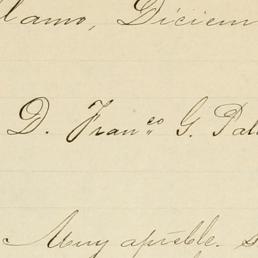 lamo, Diciem
D. Fran.co G. Pal
Muy apreble. s